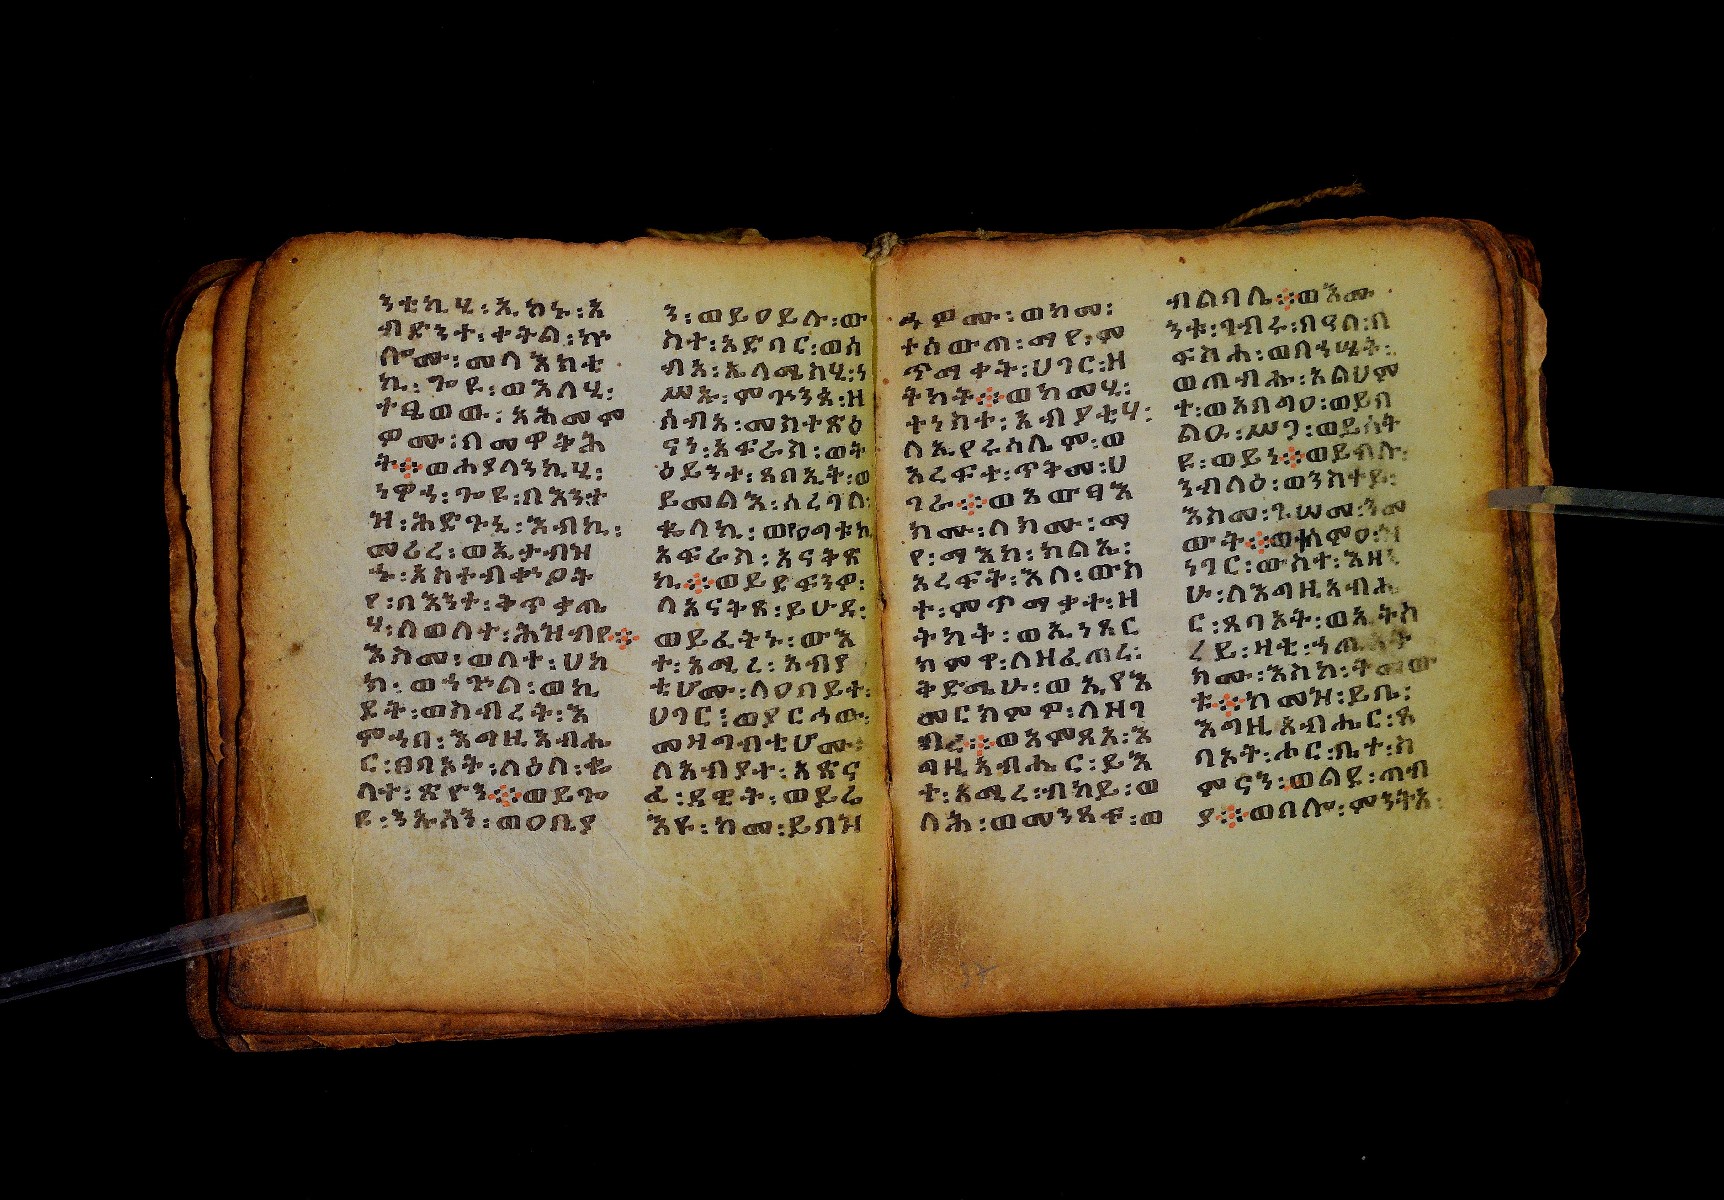 ንቲኪሂ፡ኢኮኑ፡አ
ብድንተ፡ቀትል፡ኵ
ሎሙ፡መላእክቲ
ኪ፡ጐዩ፡ወእለሂ፡
ተፄወው፡አሕመም
ዎሙ፡በመዋቅሕ
ት፨ወሐያላንኪሂ፡
ነዋኅ፡ጐዩ፡በእንተ
ዝ፡ሕድጉኒ፡እብኪ፡
መሪረ፡ወኢታብዝ
ኁ፡አስተብቍዖት
የ፡በእንተ፡ቅጥቃጤ
ሃ፡ለወለተ፡ሕዝብየ፨
እስመ፡ወለተ፡ሀከ
ክ፡ወኀጕል፡ወኪ
ደት፡ወስብረት፡እ
ምኀበ፡እግዚአብሔ
ር፡ፀባኦት፡ለዕለ፡ቈ
ላተ፡ጽዮን፨ወይጐ
ዩ፡ንኡሳን፡ወዐቢያ
ን፡ወይዐይሉ፡ው
ስተ፡አድባር፡ወሰ
ብአ፡ኤላሜከሂ፡ነ
ሥኡ፡ምጕንጳ፡ዘ
ሰብአ፡መስተጽዕ
ናን፡አፍራስ፡ወት
ዕይንተ፡ጸበኢት፡ወ
ይመልእ፡ሰረገላ፡
ቈላኪ፡ወየዐግቱኪ
አፍራስ፡አናቅጽ
ኪ፨ወይደፍንዎ፡
ለአናቅጸ፡ይሁዳ፡
ወይፈትኑ፡ውእ
ተ፡አሚረ፡አብያ
ቲሆሙ፡ለዐበይተ፡
ሀገር፡ወያርኅው፡
መዛግብቲሆሙ፡
ለአብያተ፡አጽና
ፈ፡ዳዊት፡ወይሬ
እዩ፡ከመ፡ይበዝ
ኁዎሙ፡ወከመ፡
ተሰውጠ፡ማየ፡ም
ጥማቃት፡ሀገር፡ዘ
ትካት፨ወከመሂ፡
ተነስተ፡አብያቲሃ፡
ለኢየሩሳሌም፡ወ
አረፍተ፡ጥቅመ፡ሀ
ገራ፨ወአውፃእ
ክሙ፡ለክሙ፡ማ
የ፡ማእከ፡ክልኤ፡
አረፍት፡እለ፡ውስ
ተ፡ምጥማቃተ፡ዘ
ትካት፡ወኢነጸር
ክምዋ፡ለዘፈጠረ፡
ቅድሜሁ፡ወኢየእ
መርክምዎ፡ለዝገ
ብረ፨ወአምጽአ፡እ
ግዚአብሔር፡ይእ
ተ፡አሚረ፡ብካይ፡ወ
ላሕ፡ወመንጸፍ፡ወ
ብልባሌ፨ወእሙ
ንቱ፡ገብሩ፡በዓለ፡በ
ፍስሐ፡ወበኀሤት፡
ወጠብሑ፡አልህም
ተ፡ወአባግዐ፡ወይበ
ልዑ፡ሥጋ፡ወይሰት
ዩ፡ወይነ፨ወይብሉ፡
ንብላዕ፡ወንስተይ፡
እስመ፡ጌሠመ፡ንመ
ውት፨
ነገር፡ውስተ፡እዘኒ
ሁ፡ለእግዚአብሔ
ር፡ጸባኦት፡ወኢትስ
ረይ፡ዛቲ፡ኀጢአት
ክሙ፡እስከ፡ትመው
ቱ፨ከመዝ፡ይቤ፡
እግዚአብሔር፡ጸ
ባኦት፡ሖር፡ቤተ፡ስ
ምናን፡ወልዩ፡ጠብ
ያ፨ወበሎ፡ምንትአ፡